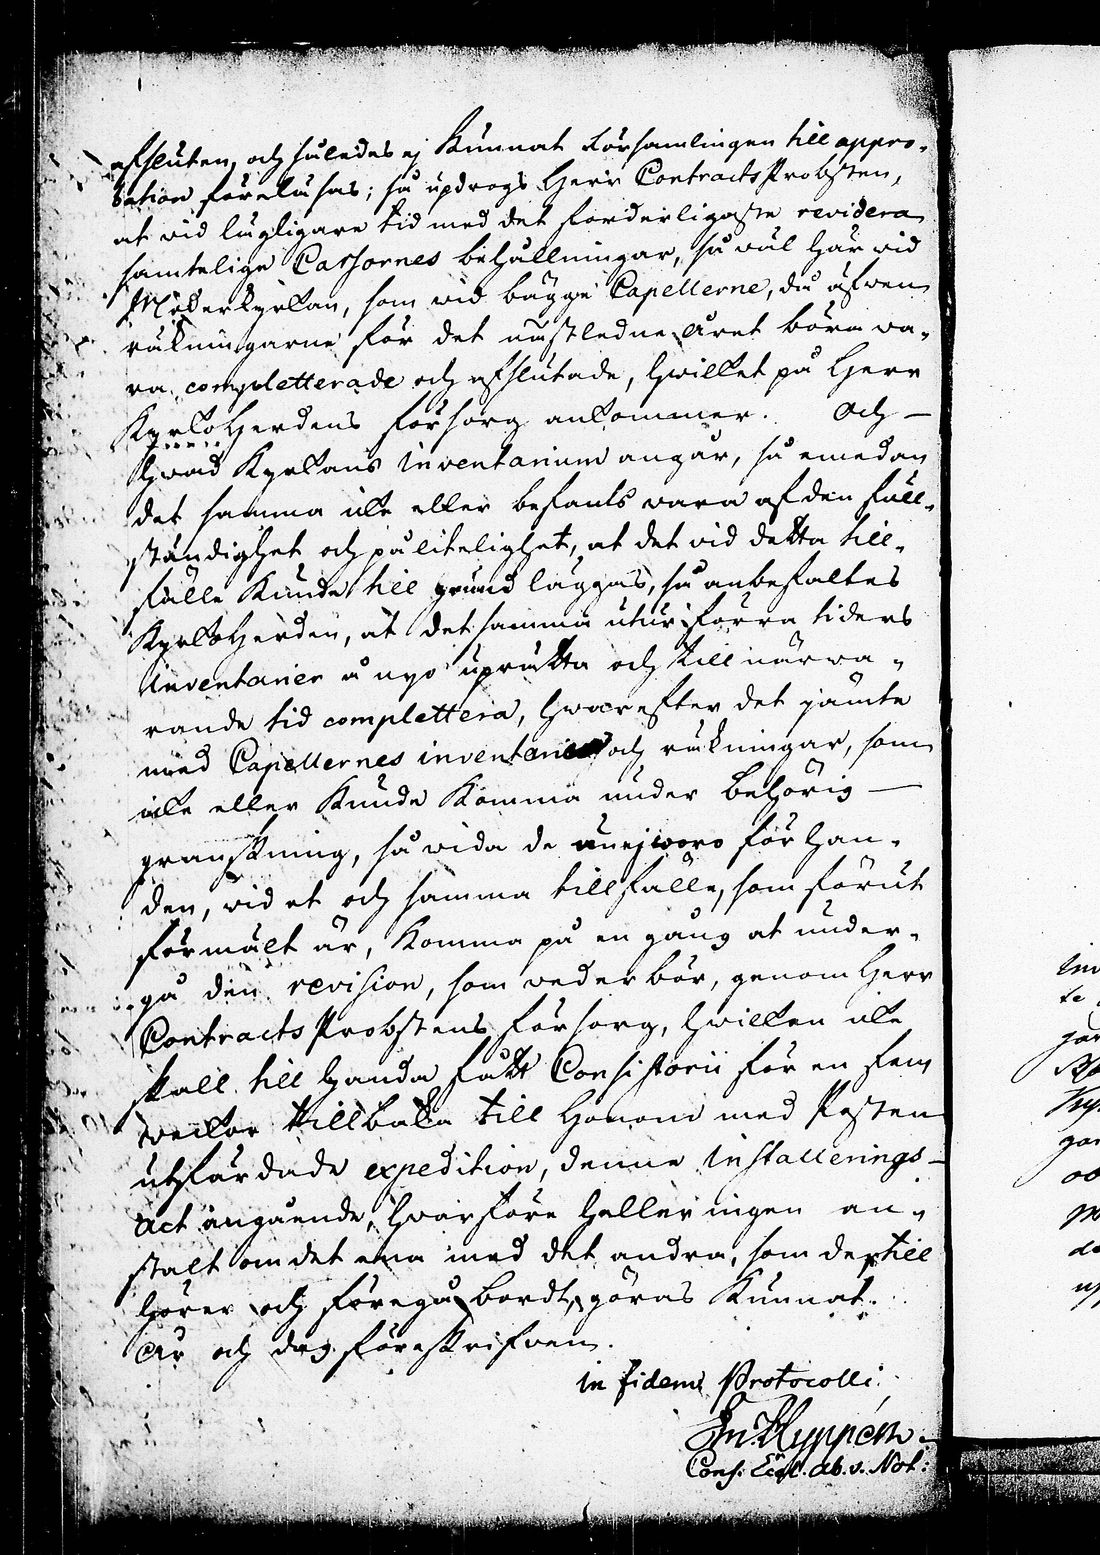 afsluten, och således ej kunnat Församlingen till appro-
bation föreläsas; så updrogs Herr Contracts Probsten,
at vid lägligare tid med det forderligaste revidera
samtelige Cassornes behållningar, så väl här vid
Moderkyrkan, som vid bägge Capellerne, då äfven
räkningarne för det nästledne året böra va-
ra completterade och afslutade, hvilket på Herr
KyrkoHerdens försorg ankommer. Och
hvad Kyrkans inventarium angår, så emedan
det samma icke eller befants vara af den full-
ständighet och pålitelighet, at det vid detta till-
fälle kunde till grund läggas, så anbefaltes
KyrkoHerden, at det samma utur förra tiders
inventarier å nyo uprätta och till närva-
rande tid complettera, hvarefter det jämte
med Capellernes inventarier och räkningar, som
icke eller kunde komma under behörig
granskning, så vida de än ej woro för han-
den, vid et och samma tillfälle, som förut
förmält är, komma på en gång at under-
gå den revision, som vederbör, genom Herr
Contracts Probstens försorg, hvilken icke
skall till handa fått Consistorii för en fem
weckor tillbaka till Honom med Posten
utfärdade expedition, denne installerings-
act angående, hvarföre heller ingen an-
stalt om det ena med det andra, som dertill
hörer och föregå bordt, göras kunnat.
År och dag föreskrifven.
in fidem Protocolli
Em. Hyppén
Cons. Eccl. Ab. v. Not: